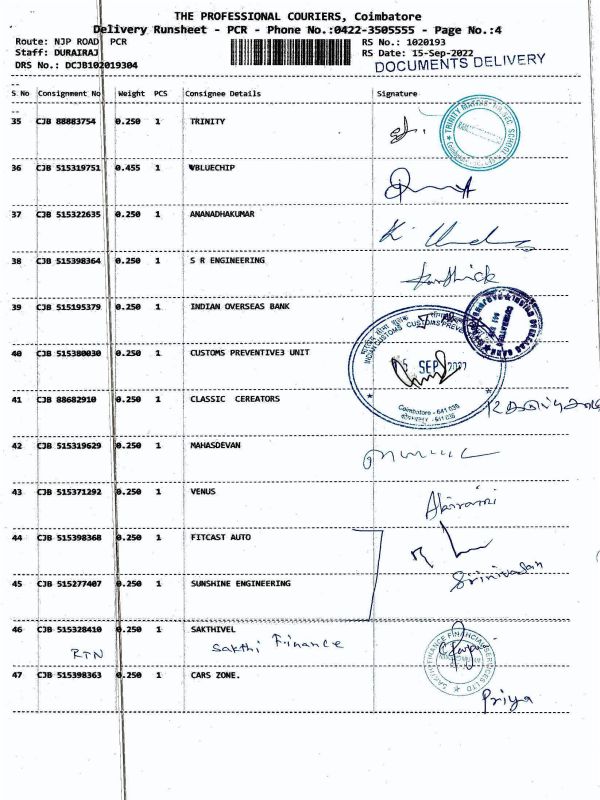 THE PROFESSIONAL COURIERS, Coimbatore
Delivery Runsheet - PCR - Phone No.:0422-3505555 - Page No.:4
Route: NJP ROAD PCR
RS No.: 1020193
Staff: DURAIRAJ
RS Date: 15-Sep-2022
DRS No.: DCJB102019304
DOCUMENTS DELIVERY
S No Consignment No Weight PCS Consignee Details Signature
35 CJB 88883754 0.250 1 TRINITY
36 CJB 515319751 0.455 1 VBLUECHIP
37 CJB 515322635 0.250 1 ANANADHAKUMAR
38 CJB 515398364 0.250 1 S R ENGINEERING
Karthick
39 CJB 515195379 0.250 1 INDIAN OVERSEAS BANK
INDIAN OVERSEAS BANK
40 CJB 515380030 0.250 1 CUSTOMS PREVENTIVE3 UNIT
SEP
Coimbatore - 641 038
41 CJB 88682910 0.250 1 CLASSIC CEREATORS
42 CJB 515319629 0.250 1 MAHASDEVAN
43 CJB 515371292 0.250 1 VENUS
44 CJB 515398368 0.250 1 FITCAST AUTO
Srinivasan
45 CJB 515277407 0.250 1 SUNSHINE ENGINEERING
46 CJB 515328410 0.250 1 SAKTHIVEL
RTN Sakthi Finance
SAKTHI FINANCE FINANCIAL SERVICES LTD
47 CJB 515398363 0.250 1 CARS ZONE.
Priya